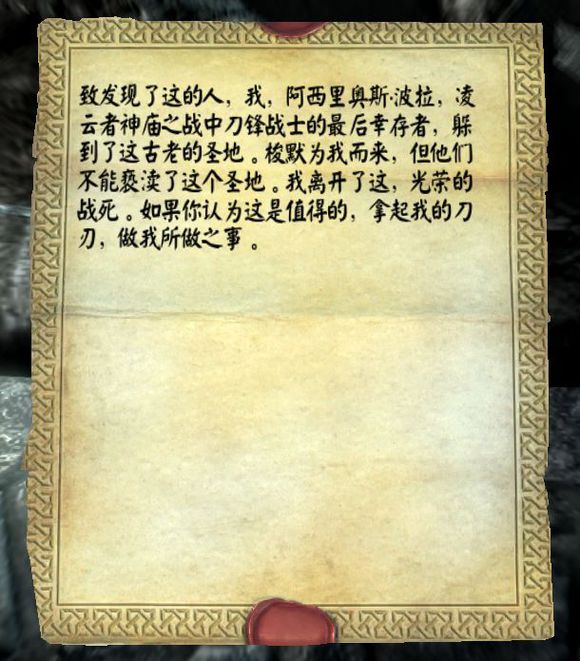 致发现了这的人，我，阿西里奥斯·波拉，凌
云者神庙之战中刀锋战士的最后幸存者，躲
到了这古老的圣地。梭默为我而来，但他们
不能亵渎了这个圣地。我离开了这，光荣的
战死。如果你认为这是值得的，拿起我的刀
刃，做我所做之事。